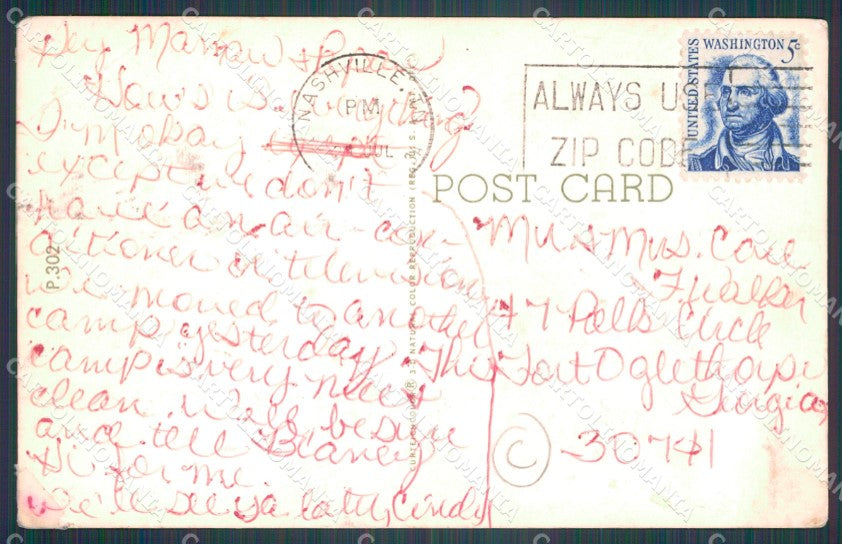 Hey Mamaw & Papaw
How's everything?
I'm okay
except we don't
have an air-con-
ditioner or television
we moved to another
camp yesterday. The
camp is very nice &
clean. Well, be sure
and tell Blaney
Hi for me.
We'll see ya later, Cindi
P.302
NASHVILLE,
PM
JUL
ALWAYS USE
ZIP CODE
UNITED STATES
WASHINGTON 5c
POST CARD
Mr & Mrs. Carl
F. Walker
47 Polk Circle
Fort Oglethorpe
Georgia
30741
C
CARTOLINOMANIA